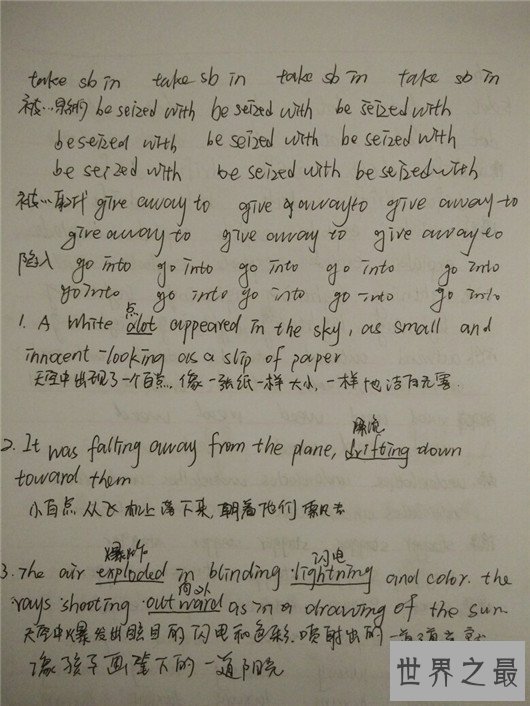 take sb in take sb in take sb in take sb in
被… be seized with be seized with be seized with
be seized with be seized with be seized with
be seized with be seized with be seized with
被…取代 give away to give away to give away to
give away to give away to give away to
陷入 go into go into go into go into go into
go into go into go into go into go into
点
1. A white dot appeared in the sky, as small and
innocent-looking as a slip of paper
天空中出现了一个白点, 像一张纸一样大小, 一样地洁白无害.
漂流
2. It was falling away from the plane, drifting down
toward them
小白点从飞机上落下来, 朝着他们飘去
爆炸 闪电
3. The air exploded in blinding lightning and color. the
向外
rays shooting outward as in a drawing of the sun
天空中爆发出眩目的闪电和色彩, 喷射出的一道道
像孩子画笔下的一道阳光
世界之最